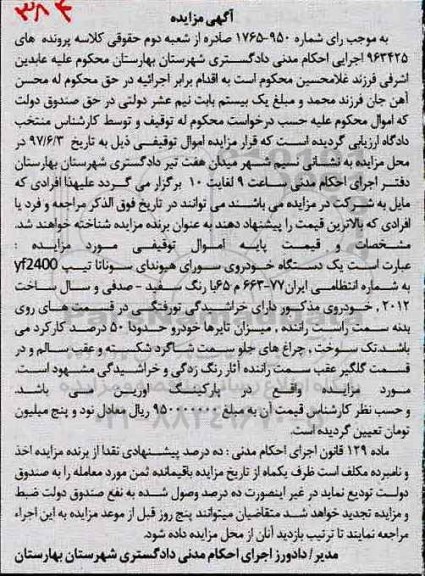 ۳۸۴
آگهی مزایده
به موجب رای شماره ۹۵۰-۱۷۶۵ صادره از شعبه دوم حقوقی کلاسه پرونده های
۹۶۳۴۲۵ اجرایی احکام مدنی دادگستری شهرستان بهارستان محکوم علیه عابدین
اشرفی فرزند غلامحسین محکوم است به اقدام برابر اجرائیه در حق محکوم له محسن
آهن جان فرزند محمد و مبلغ یک بیستم بابت نیم عشر دولتی در حق صندوق دولت
که اموال محکوم علیه حسب درخواست محکوم له توقیف و توسط کارشناس منتخب
دادگاه ارزیابی گردیده است که قرار مزایده اموال توقیفی ذیل به تاریخ ۹۷/۶/۳ در
محل مزایده به نشانی نسیم شهر میدان هفت تیر دادگستری شهرستان بهارستان
دفتر اجرای احکام مدنی ساعت ۹ لغایت ۱۰ برگزار می گردد علیهذا افرادی که
مایل به شرکت در مزایده می باشند می توانند در تاریخ فوق الذکر مراجعه و فرد یا
افرادی که بالاترین قیمت را پیشنهاد دهند به عنوان برنده مزایده شناخته خواهند شد.
مشخصات و قیمت پایه اموال توقیفی مورد مزایده :
عبارت است یک دستگاه خودروی سواری هیوندای سوناتا تیپ yf2400
به شماره انتظامی ایران۷۷-۶۶۳ م ۶۵با رنگ سفید - صدفی و سال ساخت
۲۰۱۲ ، خودروی مذکور دارای خراشیدگی تورفتگی در قسمت های روی
بدنه سمت راست راننده ، میزان تایرها خودرو حدودا ۵۰ درصد کارکرد می
باشد تک سوخت ، چراغ های جلو سمت شاگرد شکسته و عقب سالم و در
قسمت گلگیر عقب سمت راننده آثار رنگ زدگی و خراشیدگی مشهود است.
مورد مزایده واقع در پارکینگ اورین می باشد
و حسب نظر کارشناس قیمت آن به مبلغ ۹۵۰۰۰۰۰۰۰ ریال معادل نود و پنج میلیون
تومان تعیین گردیده است.
ماده ۱۲۹ قانون اجرای احکام مدنی : ده درصد پیشنهادی نقدا از برنده مزایده اخذ
و نامبرده مکلف است ظرف یکماه از تاریخ مزایده باقیمانده ثمن مورد معامله را به صندوق
دولت تودیع نماید در غیر اینصورت ده درصد وصول شده به نفع صندوق دولت ضبط
و مزایده تجدید خواهد شد متقاضیان میتوانند پنج روز قبل از موعد مزایده به این اجراء
مراجعه نمایند تا ترتیب بازدید آنان از محل مزایده داده شود.
مدیر/ دادورز اجرای احکام مدنی دادگستری شهرستان بهارستان